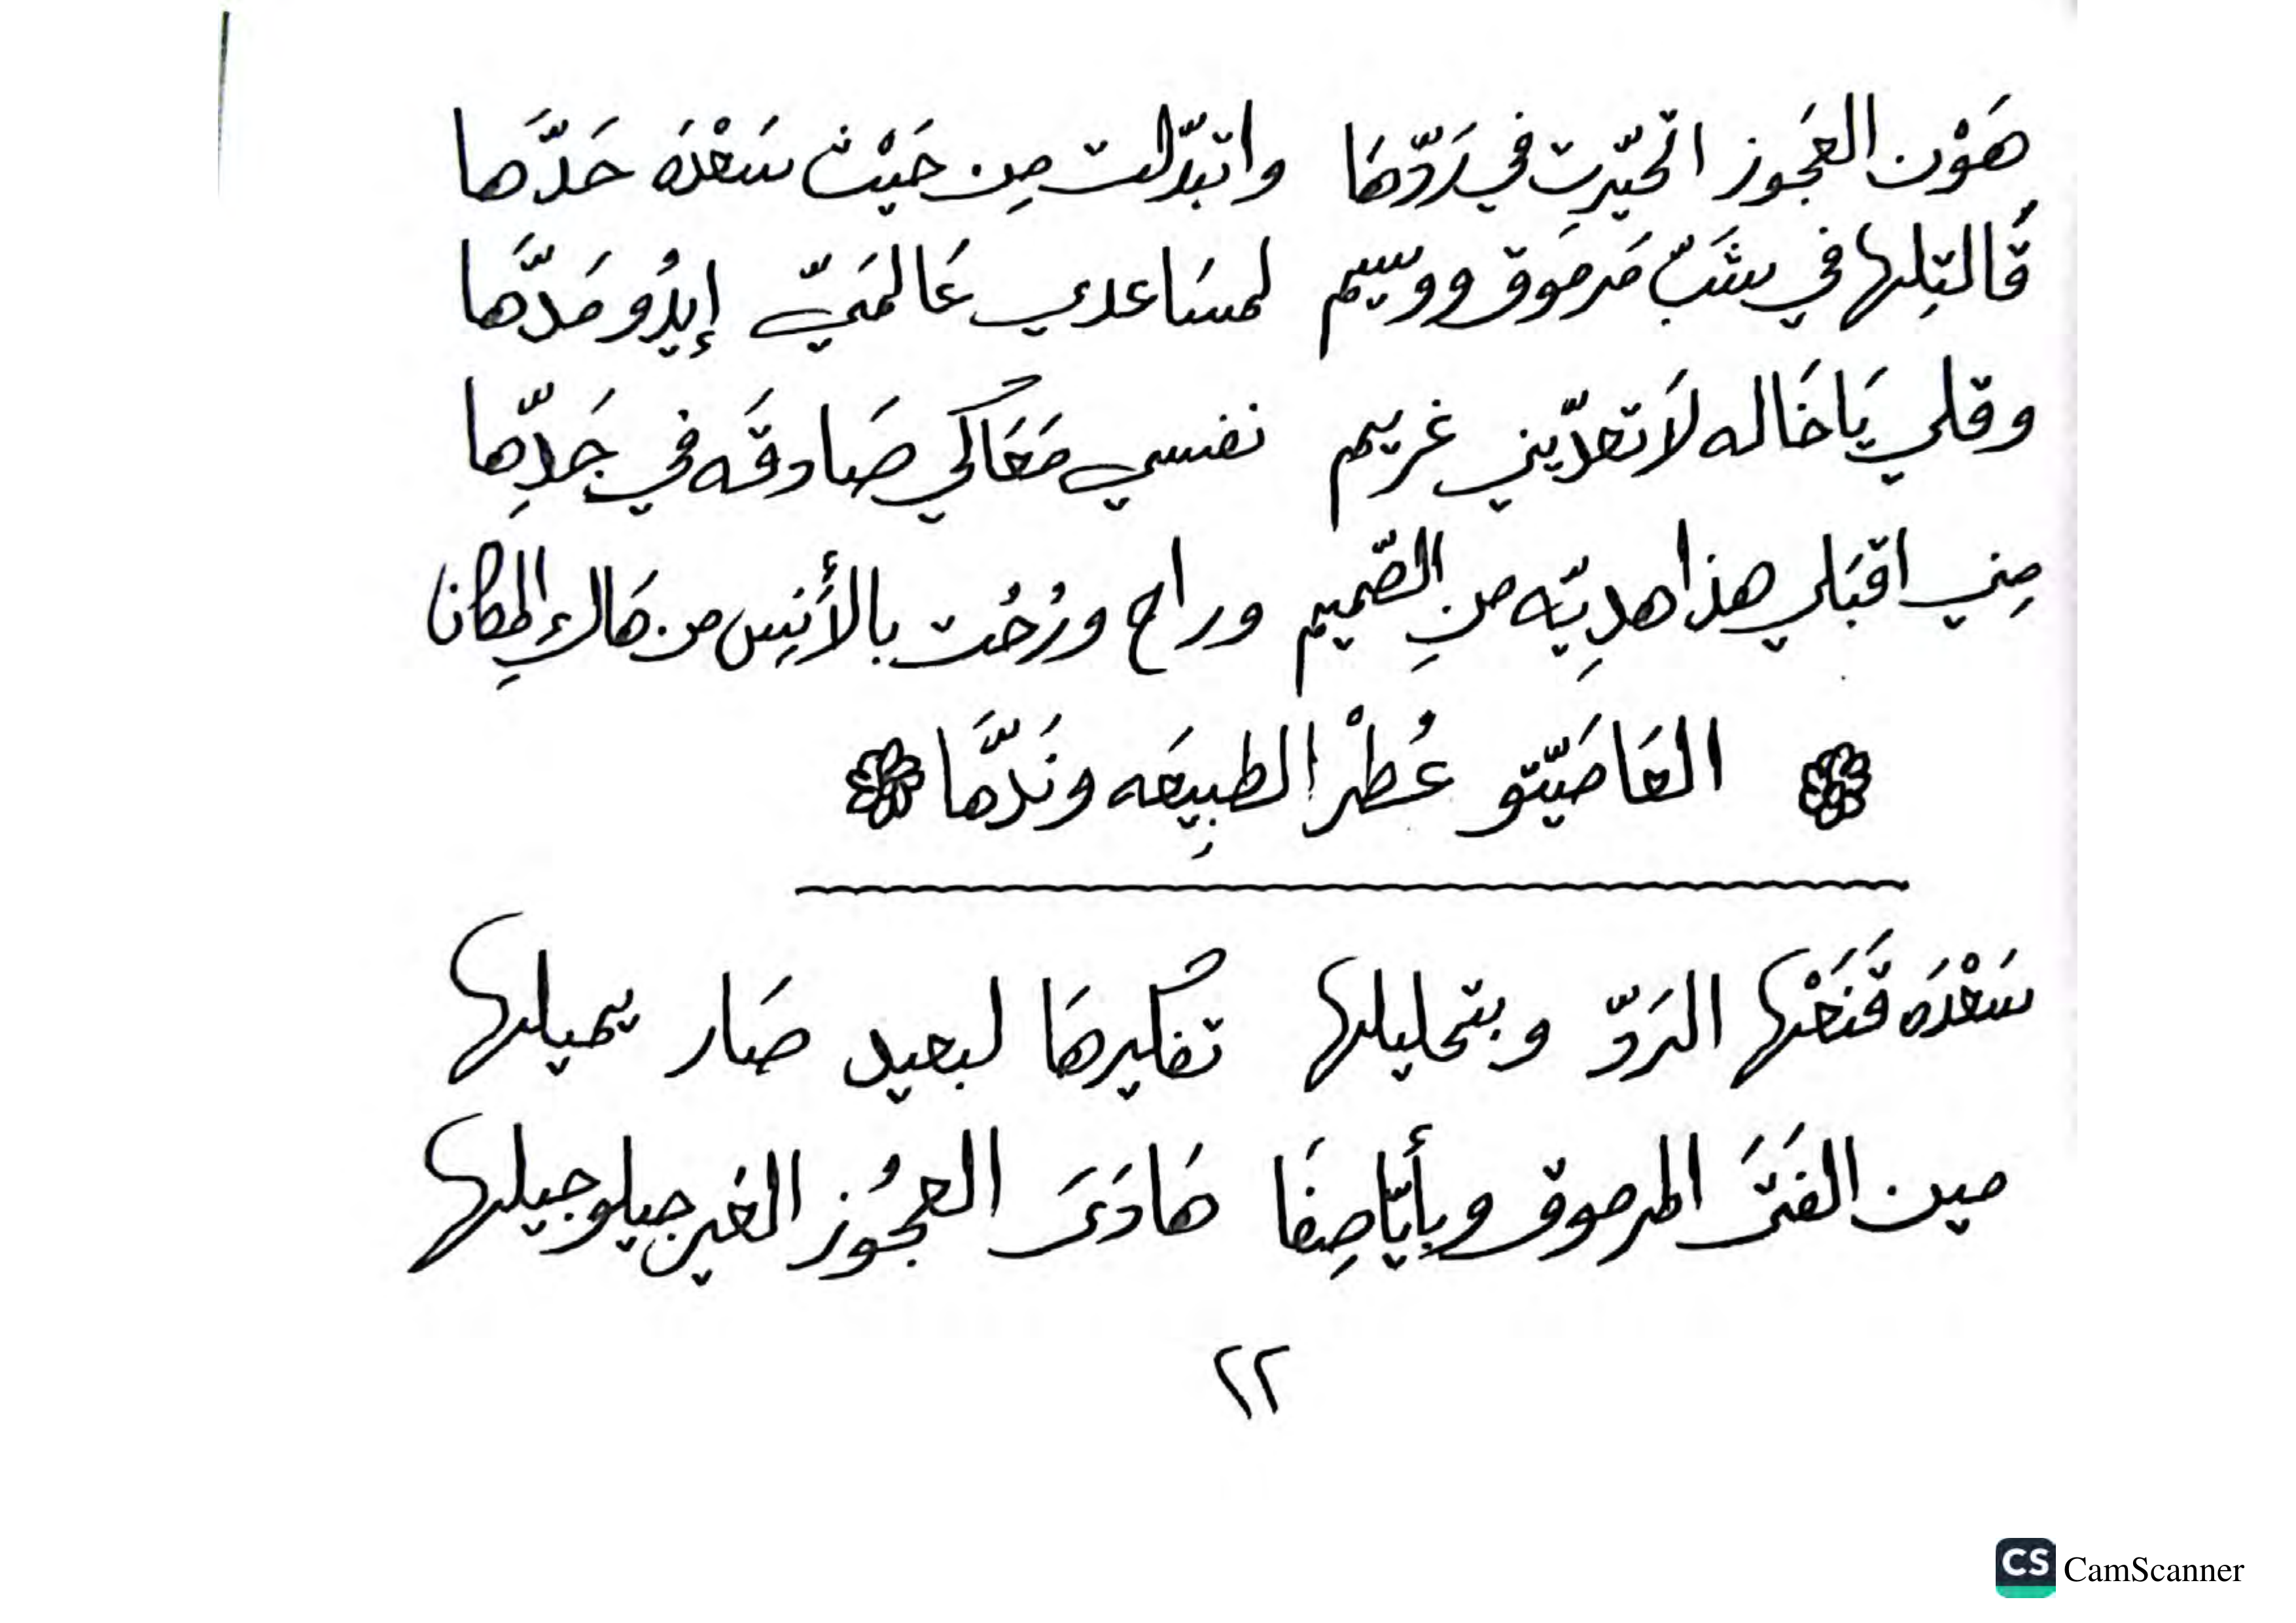 هَوْن العَجوز اتحيّرِت في رَدّهَا واتبدّلت مِن حَيْث سَعْدَه حَدَّها
قَالتِلها في شَبّ مَرمَوق ووسيم لمسَاعدي عَالمَيّ إيدُو مَدَّها
وقلي يَا خَاله لَا تعدّيني غريم نفسي مَعَاكي صَادقَه في جَدِّها
مِني اقبَلي هذا هدِيّه منِ الصّميم وراح ورُحُت بالأَنِيس من هَاك المكان
العَاصَيّتو عُطْر الطبِيعَه ونَدَّها
سَعْدَه قَنَعْها الرَدّ وبتحليلها تفكيرهَا لبعيد صَار يميلها
مين الفَتَى المرموق وبأيّا صِفَا هَادَى العجُوز الغير جيلو جيلها
٢٢
CS CamScanner